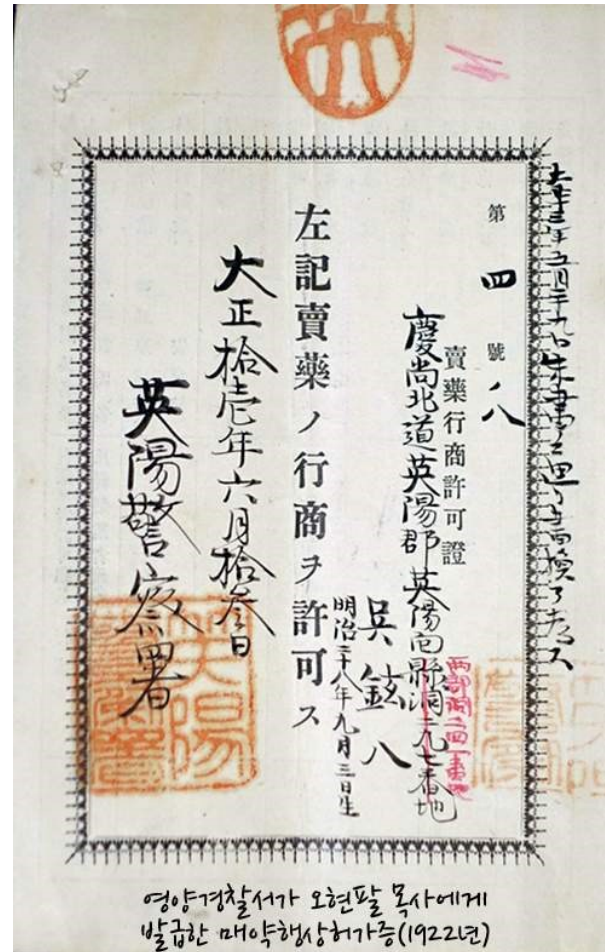 第四號ノ八
賣藥行商許可證
慶尚北道英陽郡英陽面縣洞二九七番地
西部洞二四一番地
吳鉉八
明治二十八年九月三日生
左記賣藥ノ行商ヲ許可ス
大正拾壱年六月拾叄日
英陽警察署
영양경찰서가 오현팔 목사에게
발급한 매약행상허가증(1922년)